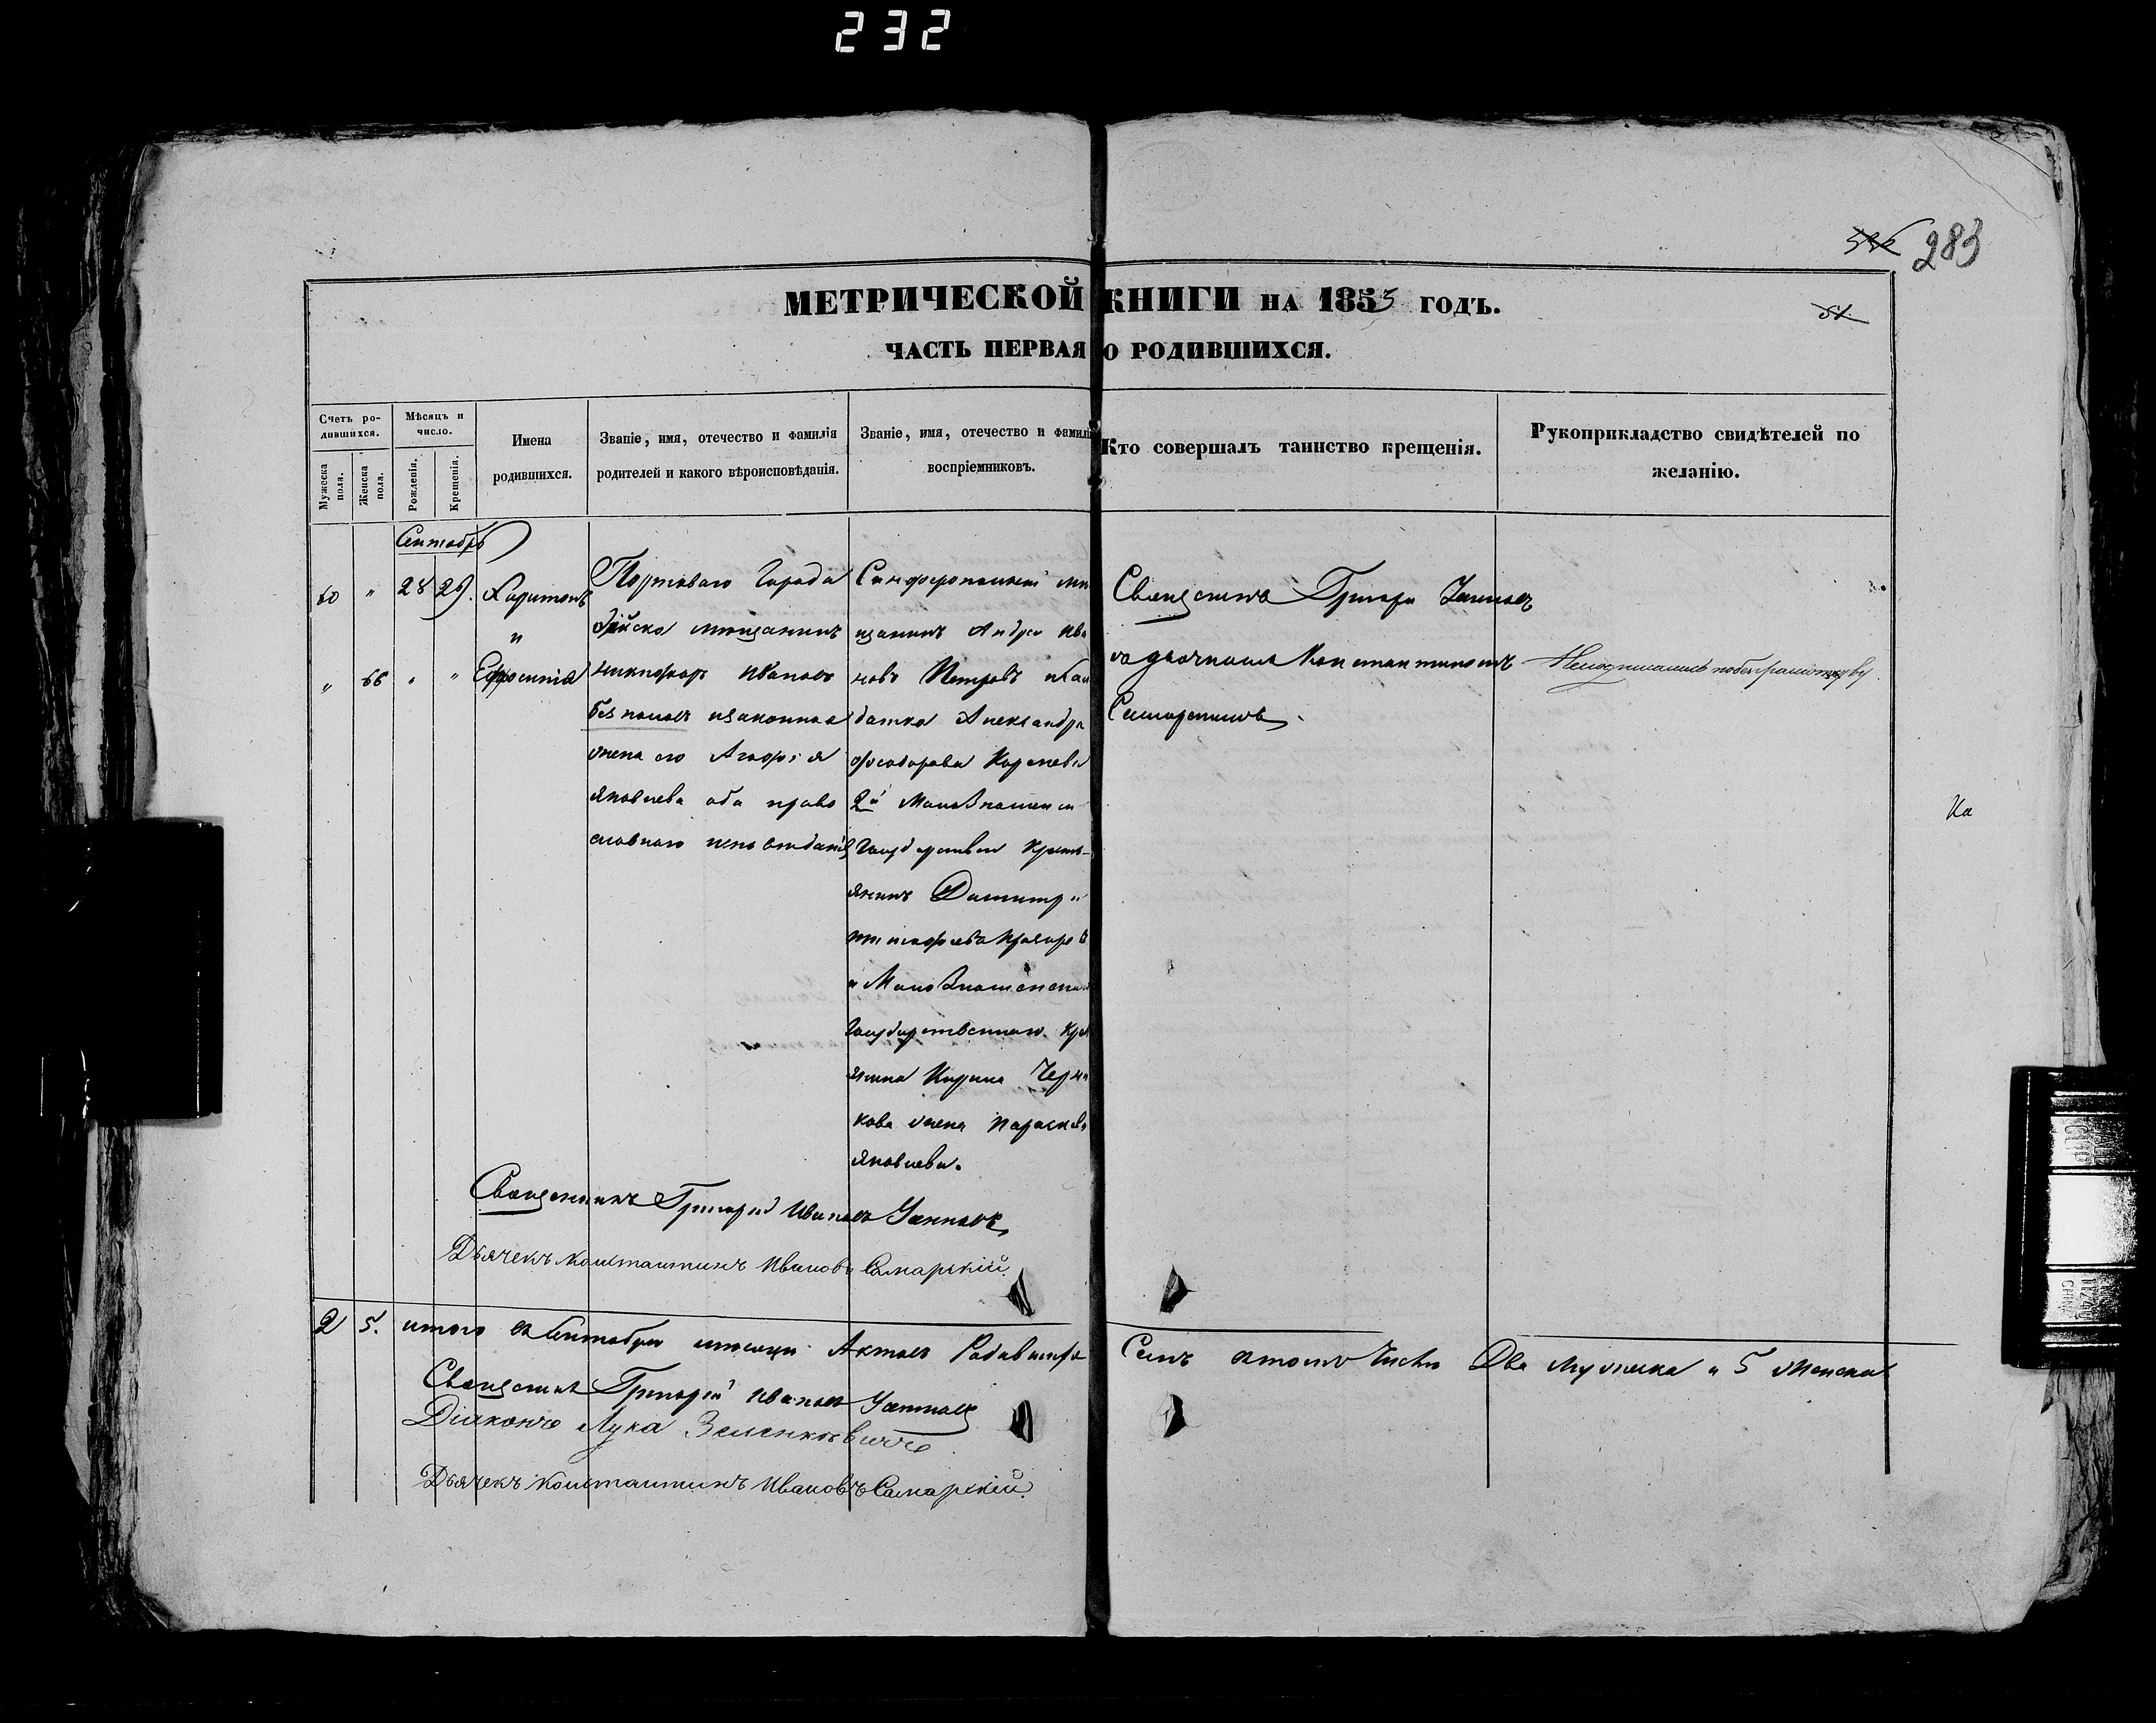 232
283
МЕТРИЧЕСКОЙ КНИГИ НА 1853 ГОДЪ.
ЧАСТЬ ПЕРВАЯ О РОДИВШИХСЯ.
Счетъ ро-
дившихся.
Мужеска пола.
Женска пола.
Мѣсяцъ и
число.
Рожденія.
Крещенія.
Имена
родившихся.
Званіе, имя, отечество и фамилія
родителей и какого вѣроисповѣданія.
Званіе, имя, отечество и фамилія
воспріемниковъ.
Кто совершалъ таинство крещенія.
Рукоприкладство свидѣтелей по
желанію.
Сентябрь
60 " 28 29. Харитонъ
и
" 66 " " Ефросинія
Портоваго Города
мѣщанинъ
Никифоръ Ивановъ
изаконная
жена его Агафія
Яковлева оба право
славнаго исповѣданія
Симферопольскій мѣ
щанинъ Андрей Ива
новъ Петровъ
Александра
Феодорова
2й МалоЗнаменск
Государствен Крестъ-
янинъ Димитр
и МалоЗнаменска
Государственнаго Кре
янина Кирила
кова жена Параскев
Яковлева.
Священникъ Григорій
съ дьячкомъ Константиномъ
Самарскимъ
Неподписались побезграмотству
Священникъ Григорій Ивановъ
Дьячекъ Константинъ Ивановъ Самарскій.
2 5. итого въ Сентябрѣ мѣсяцѣ Актовъ Родившихся Семь втомъ Числѣ Два Мужеска и 5 Женска
Священникъ Григорій Ивановъ
Діаконъ Лука Зеленкевичъ
Дьячекъ Константинъ Ивановъ Самарскій.